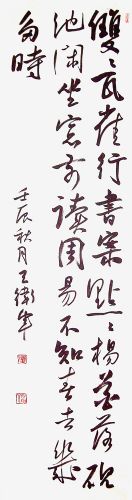 雙〻瓦雀行書案點〻楊花落硯
池閑坐窓前讀周易不知春去幾
多時
壬辰秋月王衛